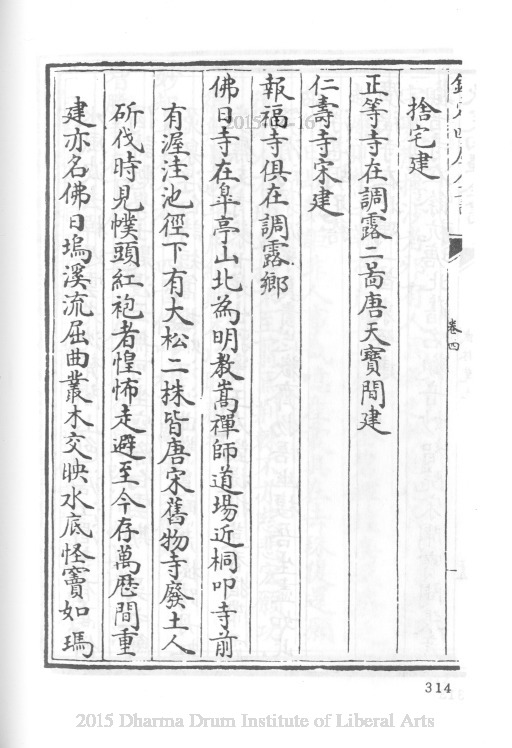 捨宅建
正等寺在調露二啚唐天寶間建
仁壽寺宋建
報福寺俱在調露鄉
佛日寺在臯亭山北為明教嵩禪師道場近桐叩寺前
有渥洼池徑下有大松二株皆唐宋舊物寺廢土人
斫伐時見幞頭紅袍者惶怖走避至今存萬歷間重
建亦名佛日塢溪流屈曲叢木交映水底怪竇如瑪
卷四
314
2015 Dharma Drum Institute of Liberal Arts